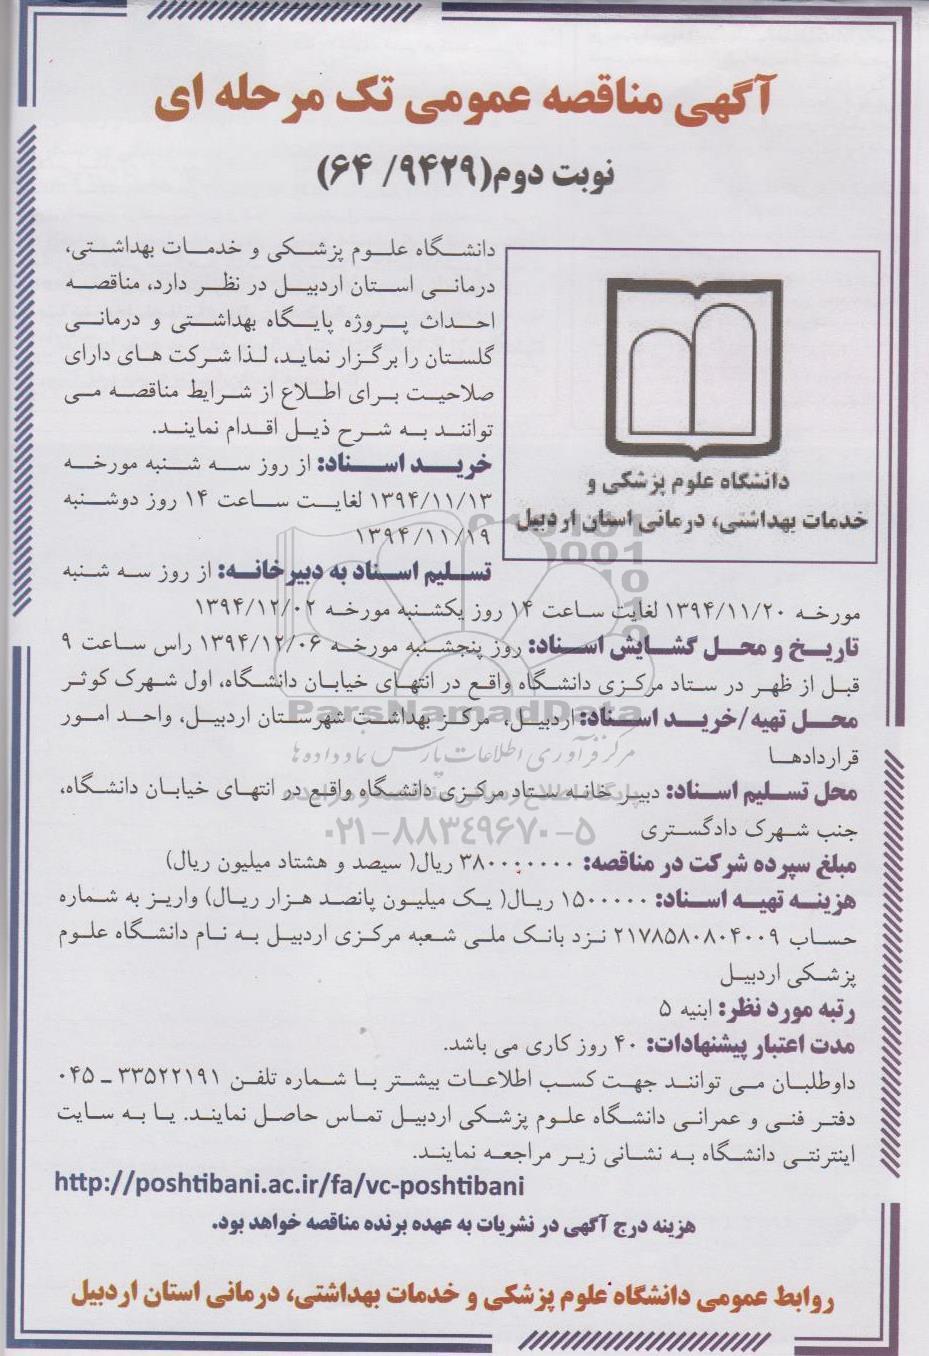 آگهی مناقصه عمومی تک مرحله ای
نوبت دوم(۹۴۲۹/ ۶۴)
دانشگاه علوم پزشکی و
خدمات بهداشتی، درمانی استان اردبیل
دانشگاه علوم پزشکی و خدمات بهداشتی،
درمانی استان اردبیل در نظر دارد، مناقصه
احداث پروژه پایگاه بهداشتی و درمانی
گلستان را برگزار نماید، لذا شرکت های دارای
صلاحیت برای اطلاع از شرایط مناقصه می
توانند به شرح ذیل اقدام نمایند.
خرید اسناد: از روز سه شنبه مورخه
۱۳۹۴/۱۱/۱۳ لغایت ساعت ۱۴ روز دوشنبه
۱۳۹۴/۱۱/۱۹
تسلیم اسناد به دبیرخانه: از روز سه شنبه
مورخه ۱۳۹۴/۱۱/۲۰ لغایت ساعت ۱۴ روز یکشنبه مورخه ۱۳۹۴/۱۲/۰۲
تاریخ و محل گشایش اسناد: روز پنجشنبه مورخه ۱۳۹۴/۱۲/۰۶ راس ساعت ۹
قبل از ظهر در ستاد مرکزی دانشگاه واقع در انتهای خیابان دانشگاه، اول شهرک کوثر
محل تهیه/خرید اسناد: اردبیل، مرکز بهداشت شهرستان اردبیل، واحد امور
قراردادها
محل تسلیم اسناد: دبیر خانه ستاد مرکزی دانشگاه واقع در انتهای خیابان دانشگاه،
جنب شهرک دادگستری
مبلغ سپرده شرکت در مناقصه: ۳۸۰۰۰۰۰۰۰ ریال( سیصد و هشتاد میلیون ریال)
هزینه تهیه اسناد: ۱۵۰۰۰۰۰ ریال( یک میلیون پانصد هزار ریال) واریز به شماره
حساب ۲۱۷۸۵۸۰۸۰۴۰۰۹ نزد بانک ملی شعبه مرکزی اردبیل به نام دانشگاه علوم
پزشکی اردبیل
رتبه مورد نظر: ابنیه ۵
مدت اعتبار پیشنهادات: ۴۰ روز کاری می باشد.
داوطلبان می توانند جهت کسب اطلاعات بیشتر با شماره تلفن ۳۳۵۲۲۱۹۱ ـ ۰۴۵
دفتر فنی و عمرانی دانشگاه علوم پزشکی اردبیل تماس حاصل نمایند. یا به سایت
اینترنتی دانشگاه به نشانی زیر مراجعه نمایند.
http://poshtibani.ac.ir/fa/vc-poshtibani
هزینه درج آگهی در نشریات به عهده برنده مناقصه خواهد بود.
روابط عمومی دانشگاه علوم پزشکی و خدمات بهداشتی، درمانی استان اردبیل
ParsNamadData
مرکز فرآوری اطلاعات پارس نماد داده ها
۰۲۱-۸۸۳۴۹۶۷۰-۵